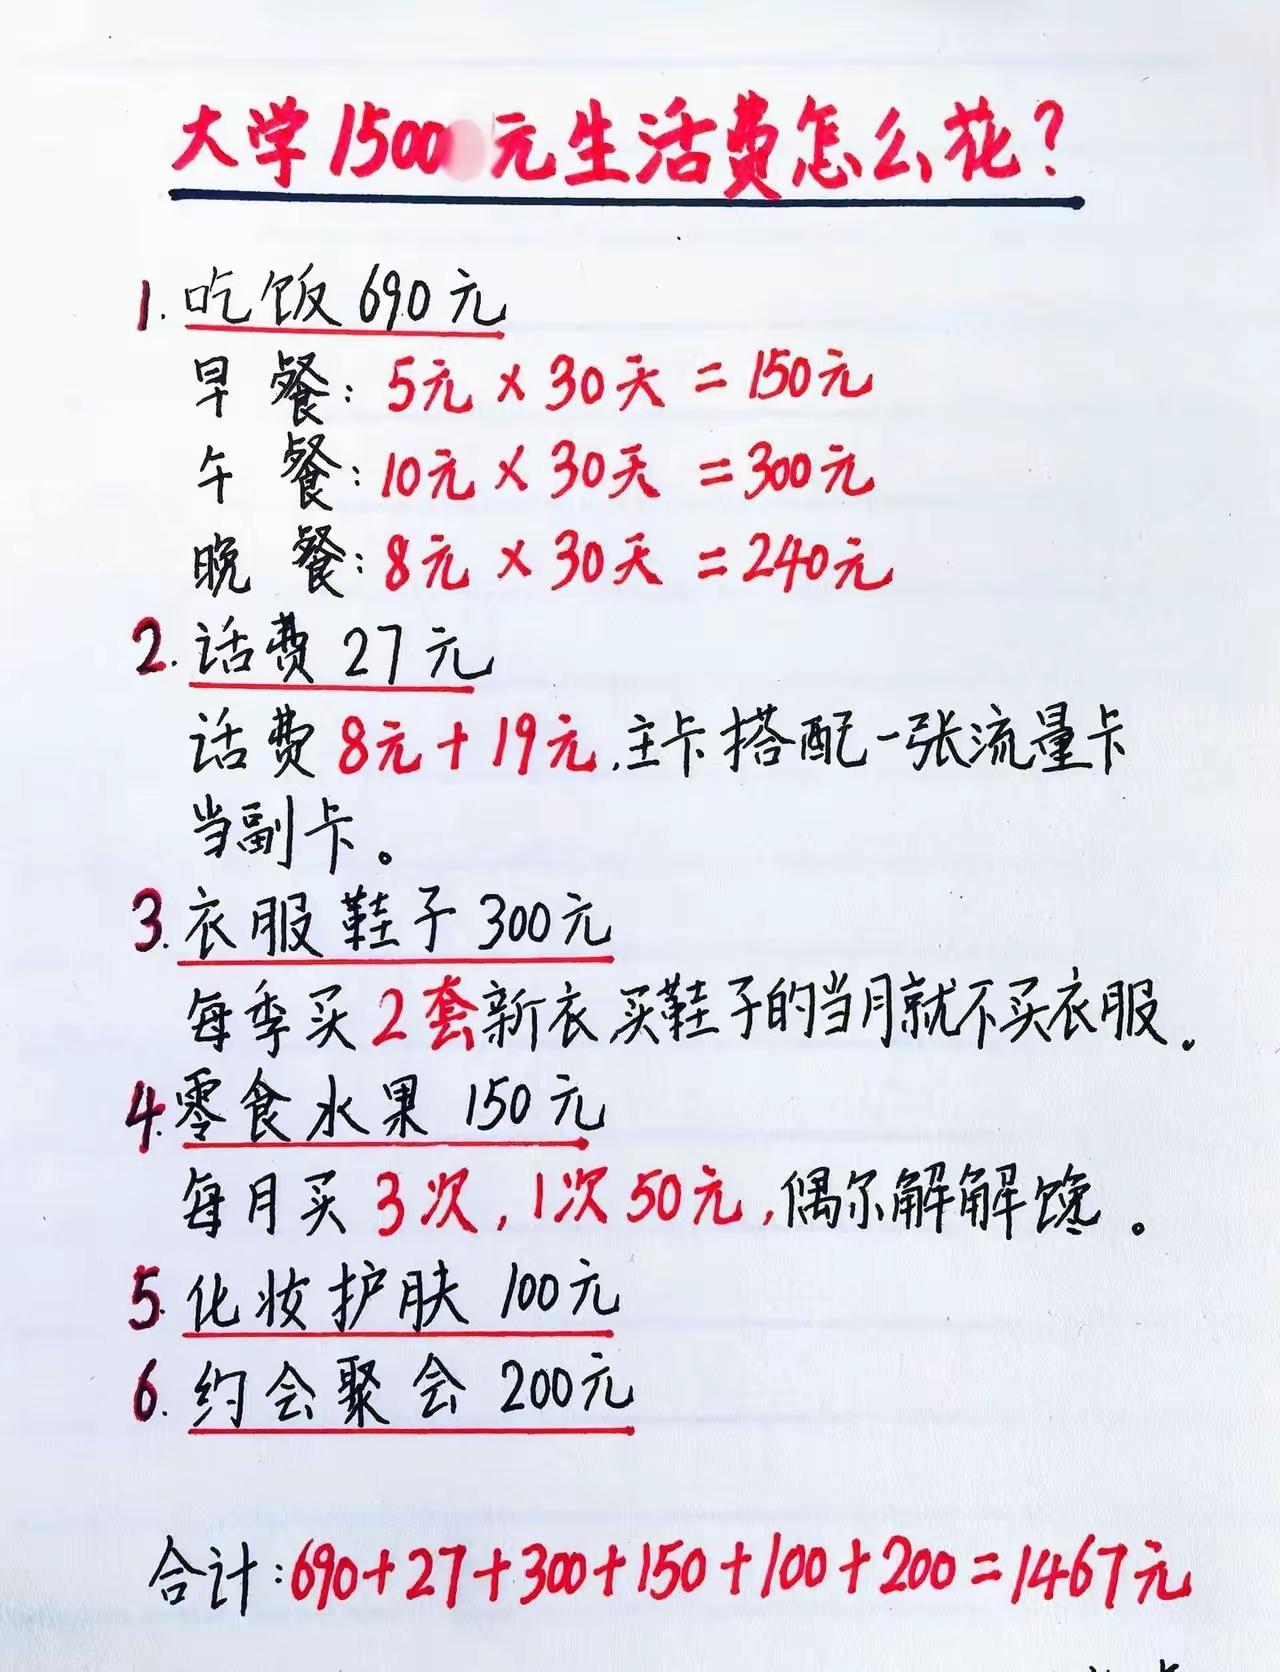 大学1500元生活费怎么花?
1. 吃饭 690元
早餐: 5元 × 30天 = 150元
午餐: 10元 × 30天 = 300元
晚餐: 8元 × 30天 = 240元
2. 话费 27元
话费 8元 + 19元,主卡搭配一张流量卡
当副卡。
3. 衣服鞋子 300元
每季买2套新衣,买鞋子的当月就不买衣服。
4. 零食水果 150元
每月买3次,1次50元,偶尔解解馋。
5. 化妆护肤 100元
6. 约会聚会 200元
合计:690+27+300+150+100+200=1467元